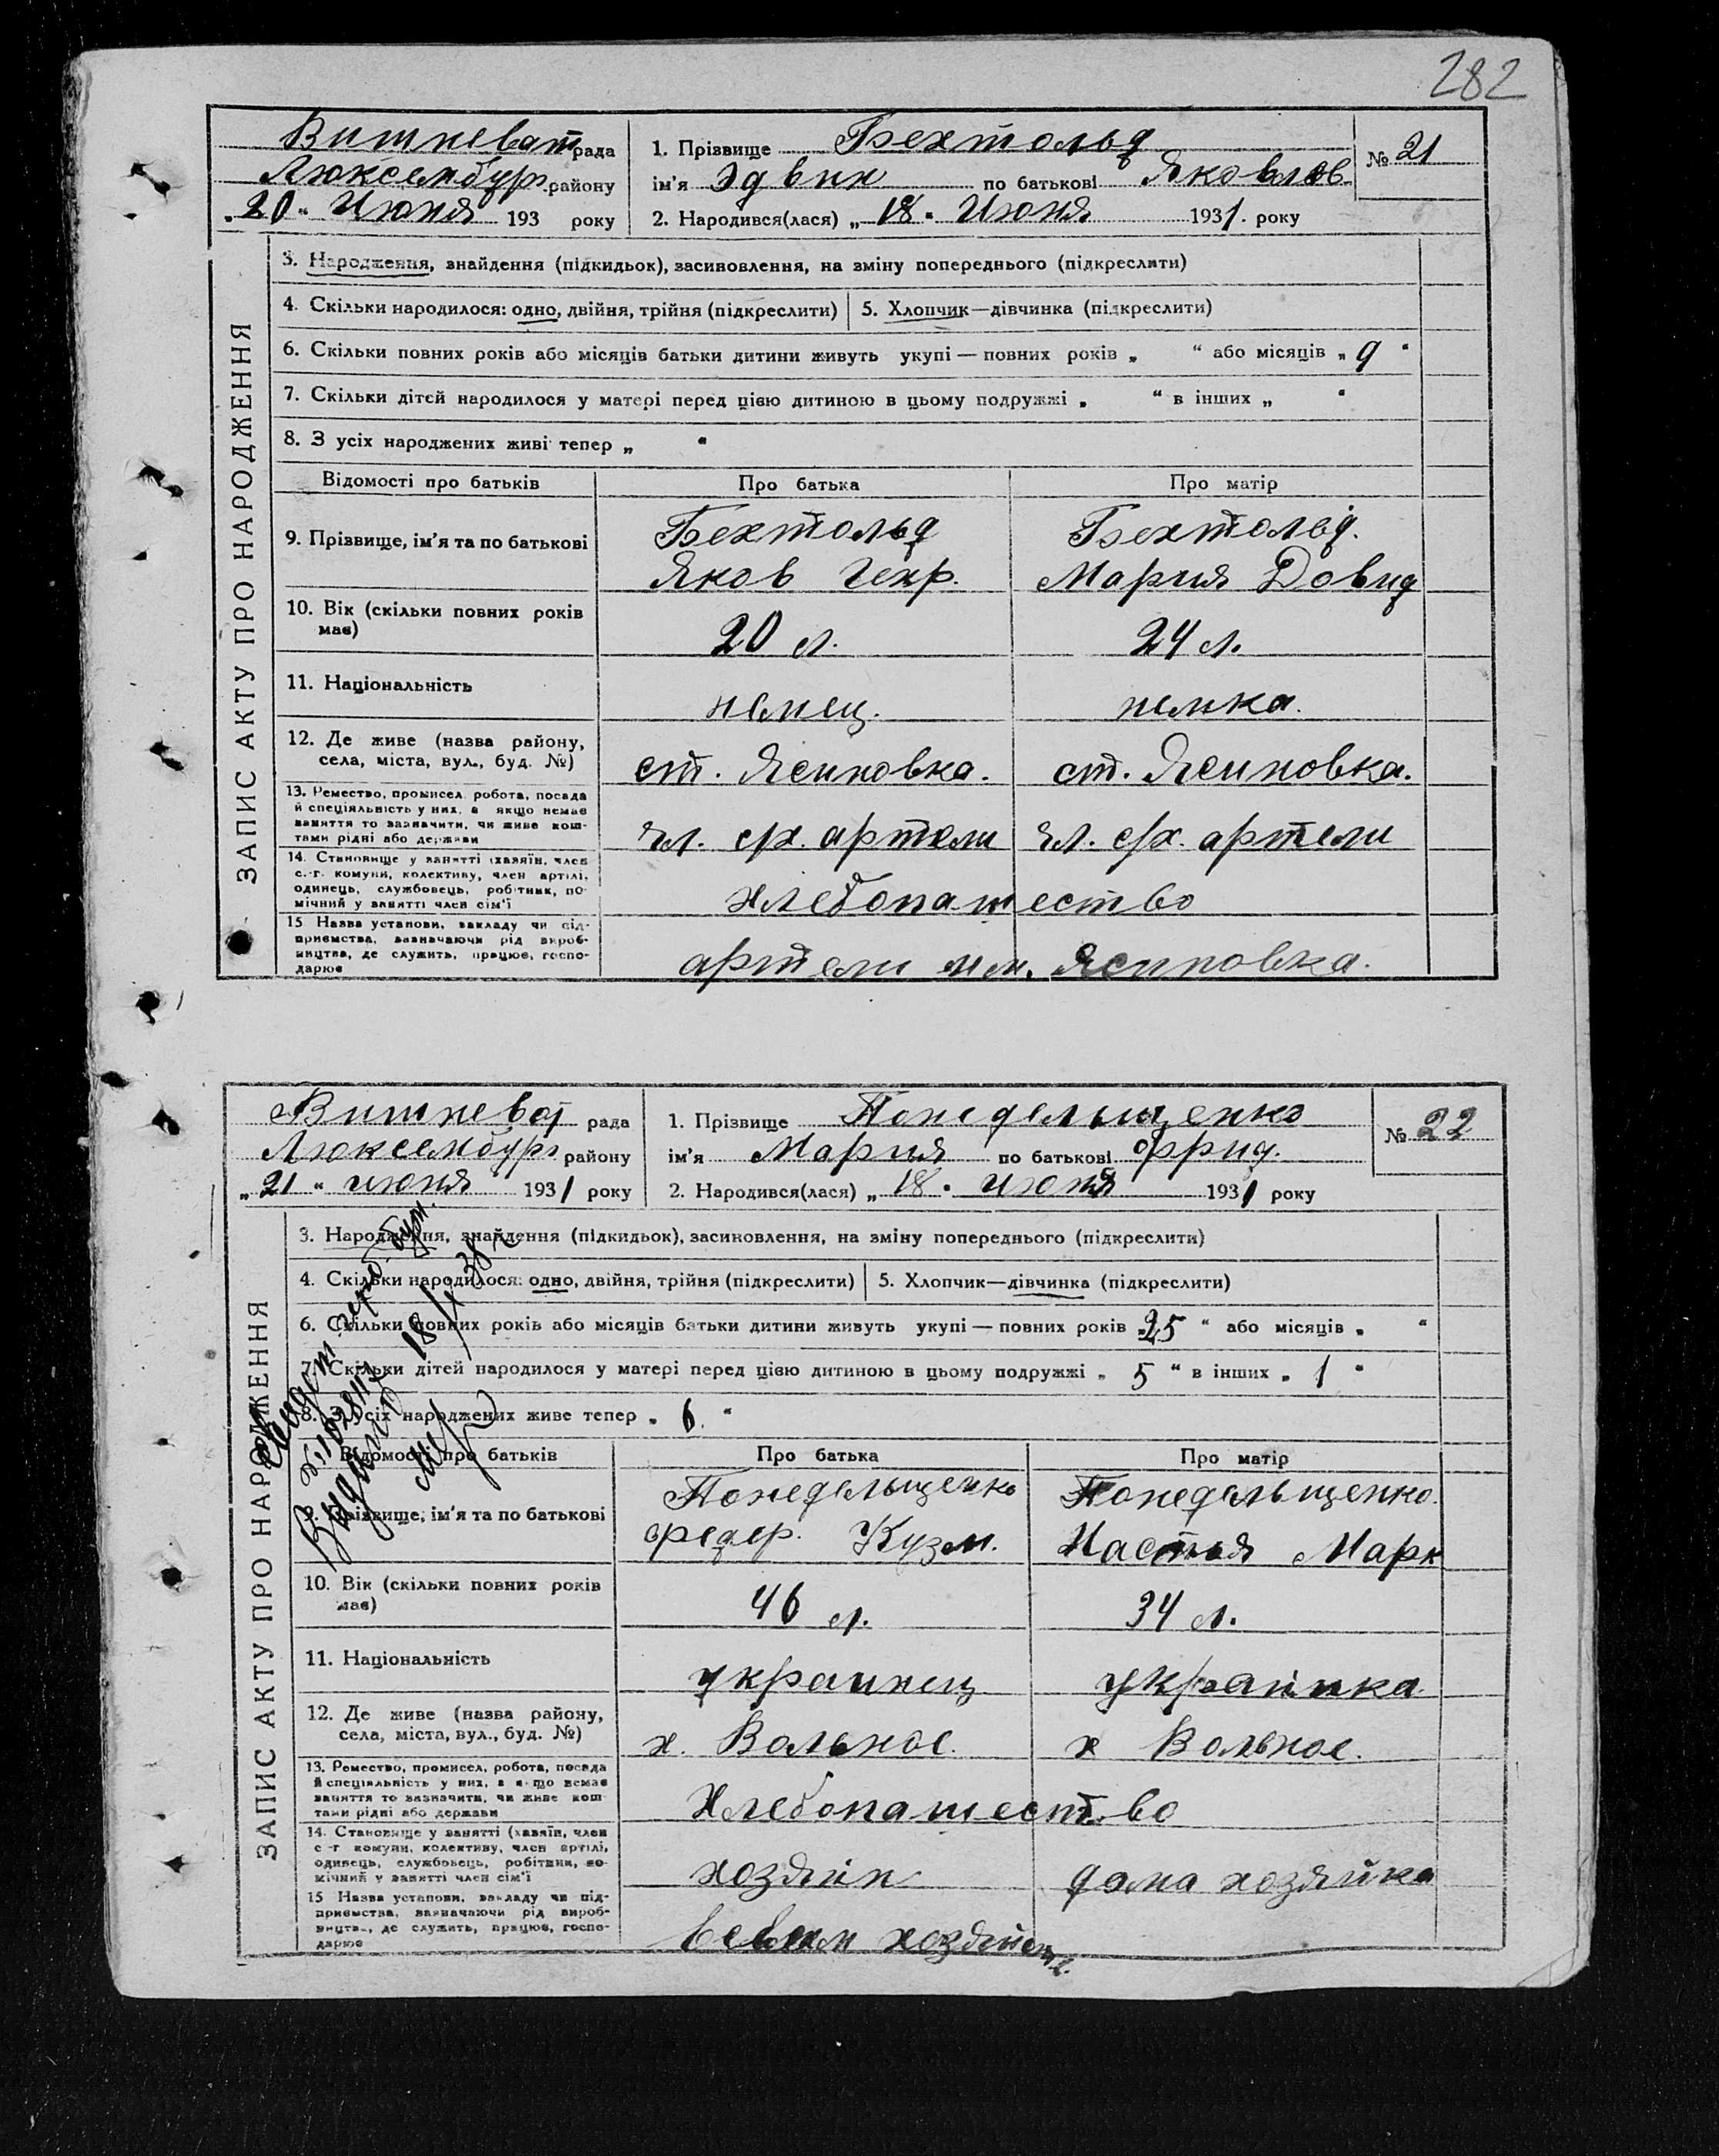 282
Вишневат рада
Люксембург. району
„20“ Июня 193 року
1. Прізвище Бехтольд
ім'я Эдвин по батькові Яковлев
2. Народився(лася) „18“ Июня 1931. року
№ 21
ЗАПИС АКТУ ПРО НАРОДЖЕННЯ
3. Народження, знайдення (підкидьок), засиновлення, на зміну попереднього (підкреслити)
4. Скільки народилося: одно, двійня, трійня (підкреслити) 5. Хлопчик—дівчинка (підкреслити)
6. Скільки повних років або місяців батьки дитини живуть укупі — повних років „ “ або місяців „ 9 “
7. Скільки дітей народилося у матері перед цією дитиною в цьому подружжі „ “ в інших „ “
8. З усіх народжених живі тепер „ “
Відомості про батьків Про батька Про матір
9. Прізвище, ім'я та по батькові
Бехтольд Бехтольд.
Яков Генр. Мария Довид
10. Вік (скільки повних років має)
20 л. 24 л.
11. Національність
немец. немка.
12. Де живе (назва району, села, міста, вул., буд. №)
ст. Ясиновка. ст. Ясиновка.
13. Ремество, промисел, робота, посада
й спеціяльність у них, а якщо немає
заняття то зазначити, чи живе кош-
тами рідні або держави
чл. с/х. артели чл. с/х. артели
14. Становище у занятті (хазяїн, член
с.-г. комуни, колективу, член артілі,
одинець, службовець, робітник, по-
мічний у занятті член сім'ї
хлебопашество
15 Назва установи, закладу чи під-
приємства, зазначаючи рід вироб-
ництва, де служить, працює, госпо-
дарює
артели им. Ясиновка.
Вишневат рада
Люксембург району
„21“ июня 1931 року
1. Прізвище Понедельщенко
ім'я Мария по батькові Ффрид.
2. Народився(лася) „18“ июня 1931 року
№ 22
ЗАПИС АКТУ ПРО НАРОДЖЕННЯ
3. Народження, знайдення (підкидьок), засиновлення, на зміну попереднього (підкреслити)
4. Скільки народилося: одно, двійня, трійня (підкреслити) 5. Хлопчик—дівчинка (підкреслити)
6. Скільки повних років або місяців батьки дитини живуть укупі — повних років „25“ або місяців „ “
7. Скільки дітей народилося у матері перед цією дитиною в цьому подружжі „ 5 “ в інших „ 1 “
8. З усіх народжених живе тепер „ 6. “
Відомості про батьків Про батька Про матір
9. Прізвище, ім'я та по батькові
Понедельщенко Понедельщенко.
Федер. Кузм. Настья Марк
10. Вік (скільки повних років має)
46 л. 34 л.
11. Національність
украинец украинка
12. Де живе (назва району, села, міста, вул., буд. №)
х. Вольное. х Вольное.
13. Ремество, промисел, робота, посада
й спеціяльність у них, а якщо немає
заняття то зазначити, чи живе кош-
тами рідні або держави
Хлебопашество
14. Становище у занятті (хазяїн, член
с-г комуни, колективу, член артілі,
одинець, службовець, робітник, по-
мічний у занятті член сім'ї
хозяин дома хозяйка
15 Назва установи, закладу чи під-
приємства, зазначаючи рід вироб-
ництва, де служить, працює, госпо-
дарює